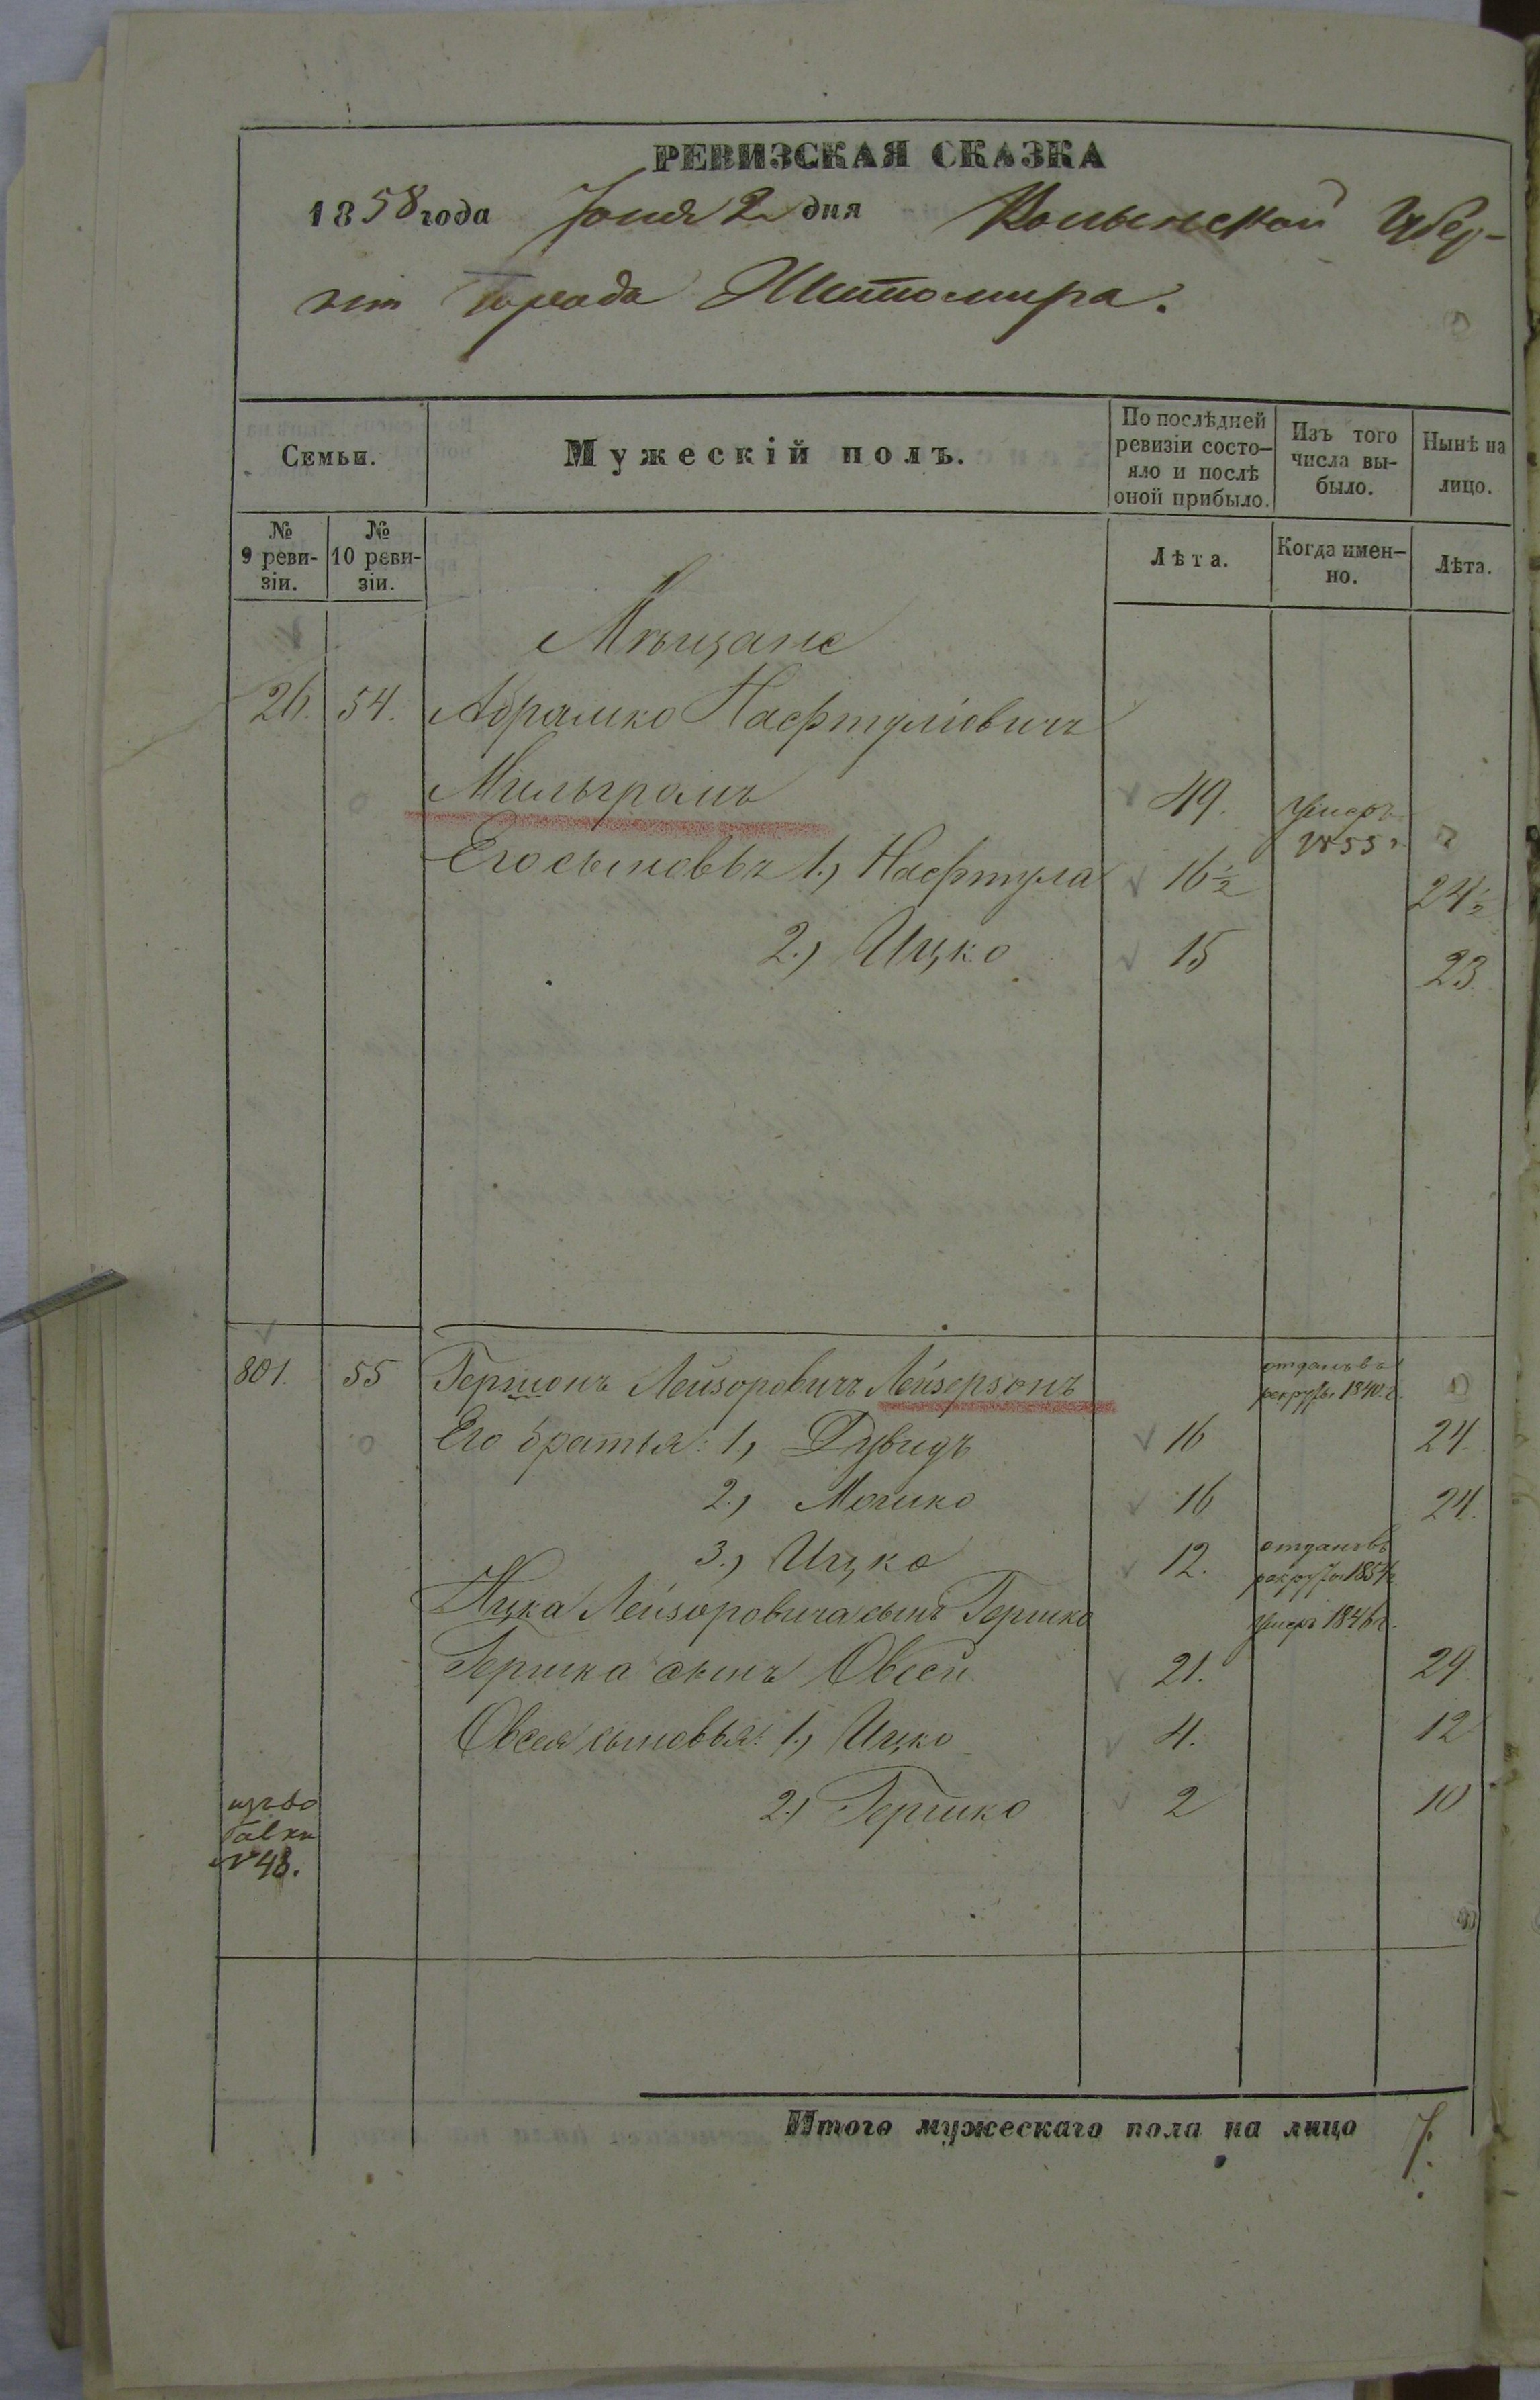 РЕВИЗСКАЯ СКАЗКА
1858 года Іюня 2 дня Волынской Губер-
ніи Города Житомира.
Семьи.
Мужескій полъ.
По послѣдней
ревизіи состо-
яло и послѣ
оной прибыло.
Изъ того
числа вы-
было.
Нынѣ на
лицо.
№
9 реви-
зіи.
№
10 реви-
зіи.
Лѣта.
Когда имен-
но.
Лѣта.
Мѣщане
26. 54. Абрамко Нафтуліовичъ
Мильгромъ 49. Умеръ
1855 г.
Его сыновья 1., Нафтула 16½ 24½
2., Ицко 15 23.
801. 55 Гершонъ Лейзоровичъ Лейзерзонъ отданъ въ
рекруты 1840 г.
Его братья: 1, Дувидъ 16 24.
2., Мошко 16 24.
3., Ицко 12. отданъ въ
рекруты 1854 г.
Ицка Лейзоровича сынъ Гершко умеръ 1846 г.
Гершка сынъ Овсей 21. 29.
Овсея сыновья: 1., Ицко 4. 12
2., Гершко 2 10
№ 43.
Итого мужескаго пола на лицо 7.